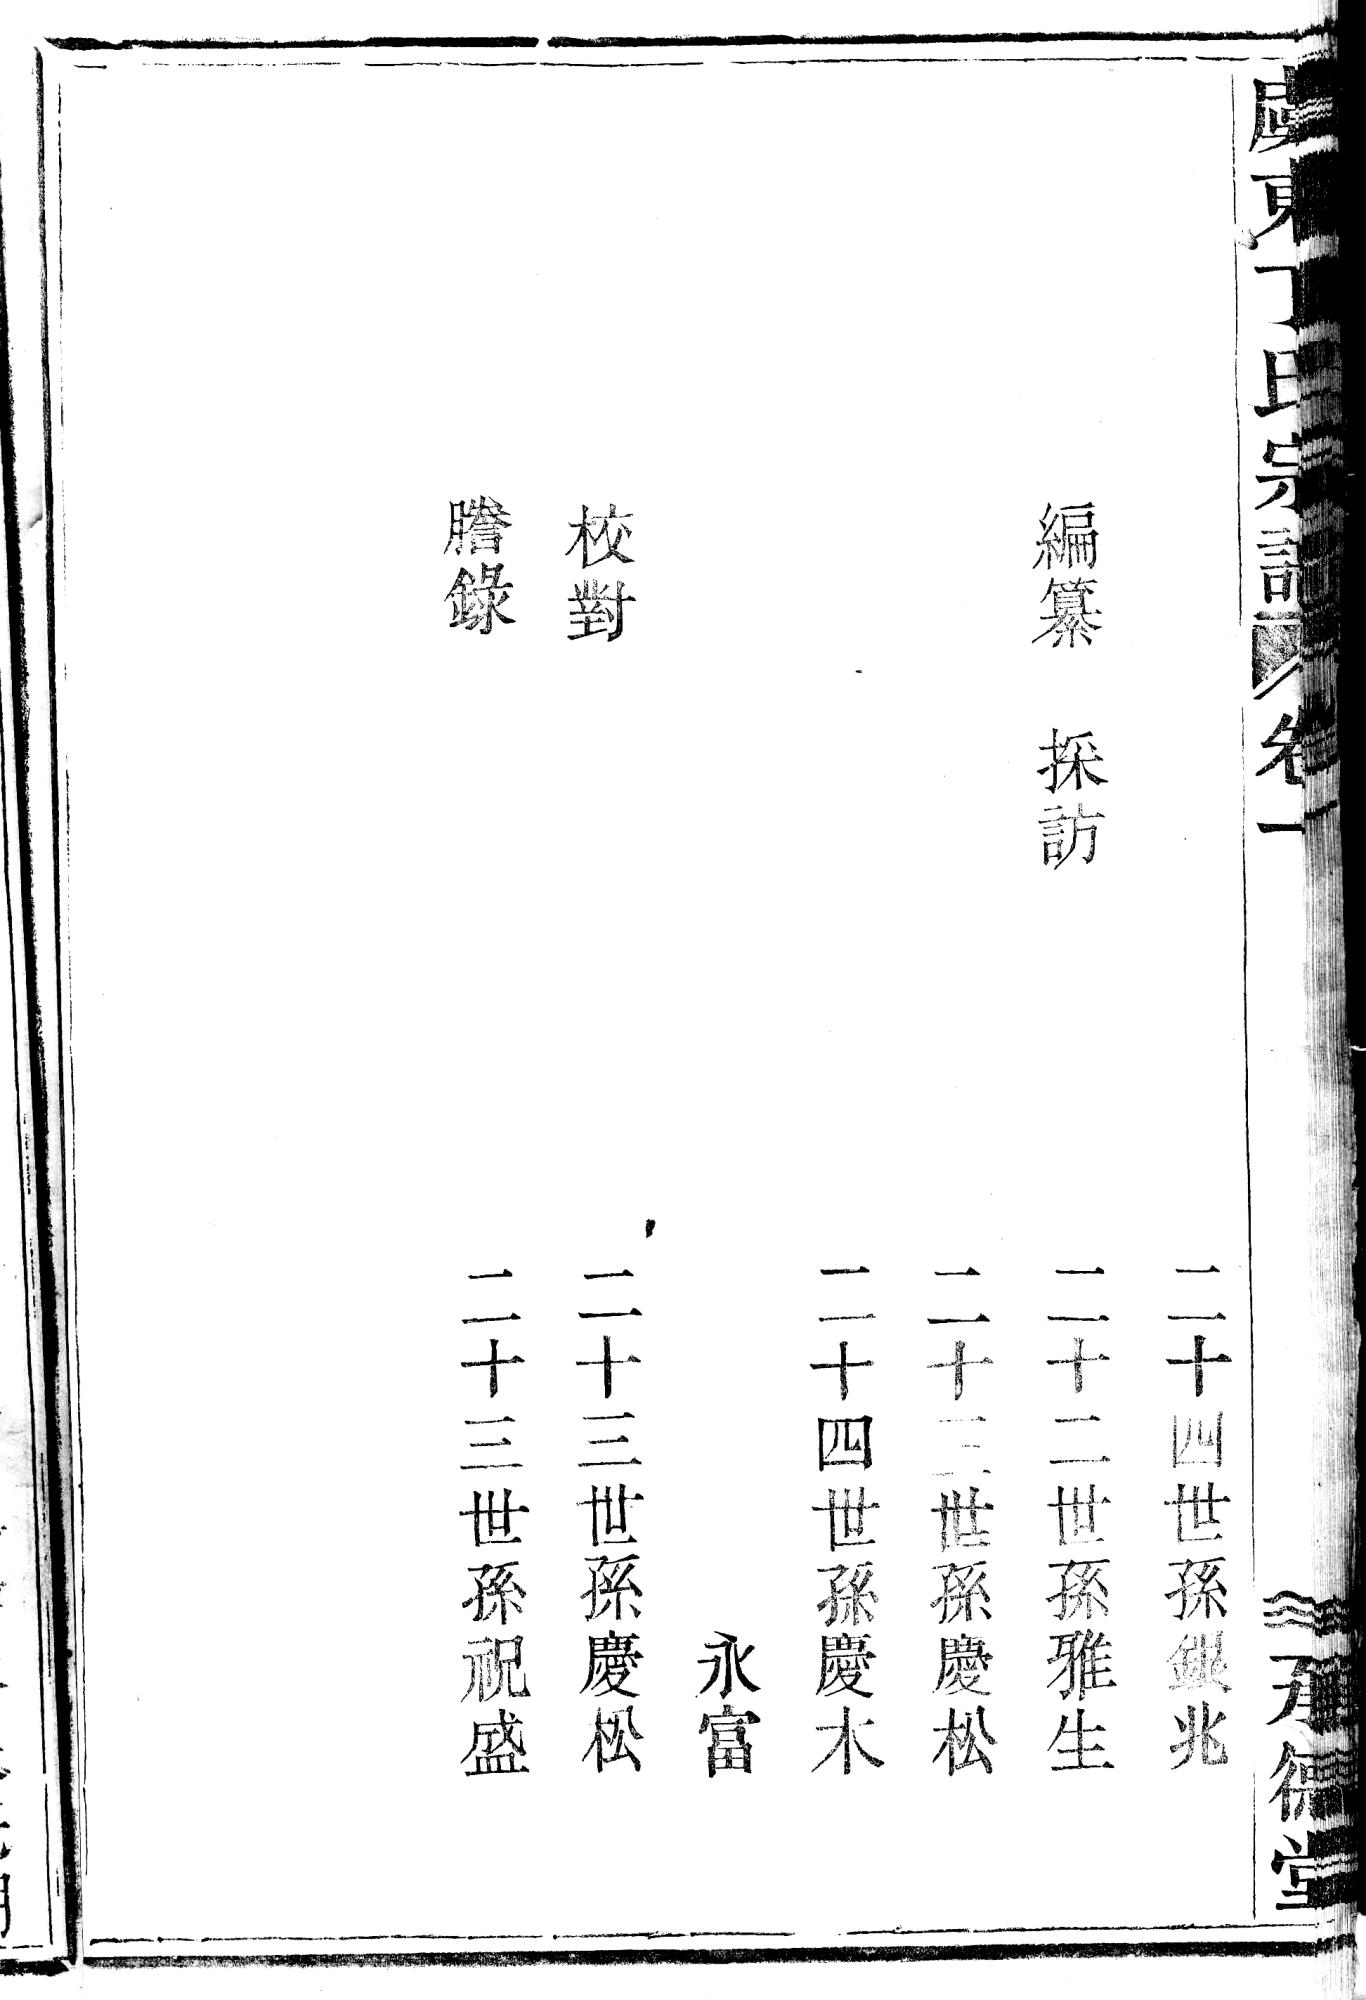 虞東丁氏宗譜 卷一 承德堂
二十四世孫銀兆
編纂 採訪 二十二世孫雅生
二十三世孫慶松
二十四世孫慶木
永富
校對 二十三世孫慶松
謄錄 二十三世孫祝盛